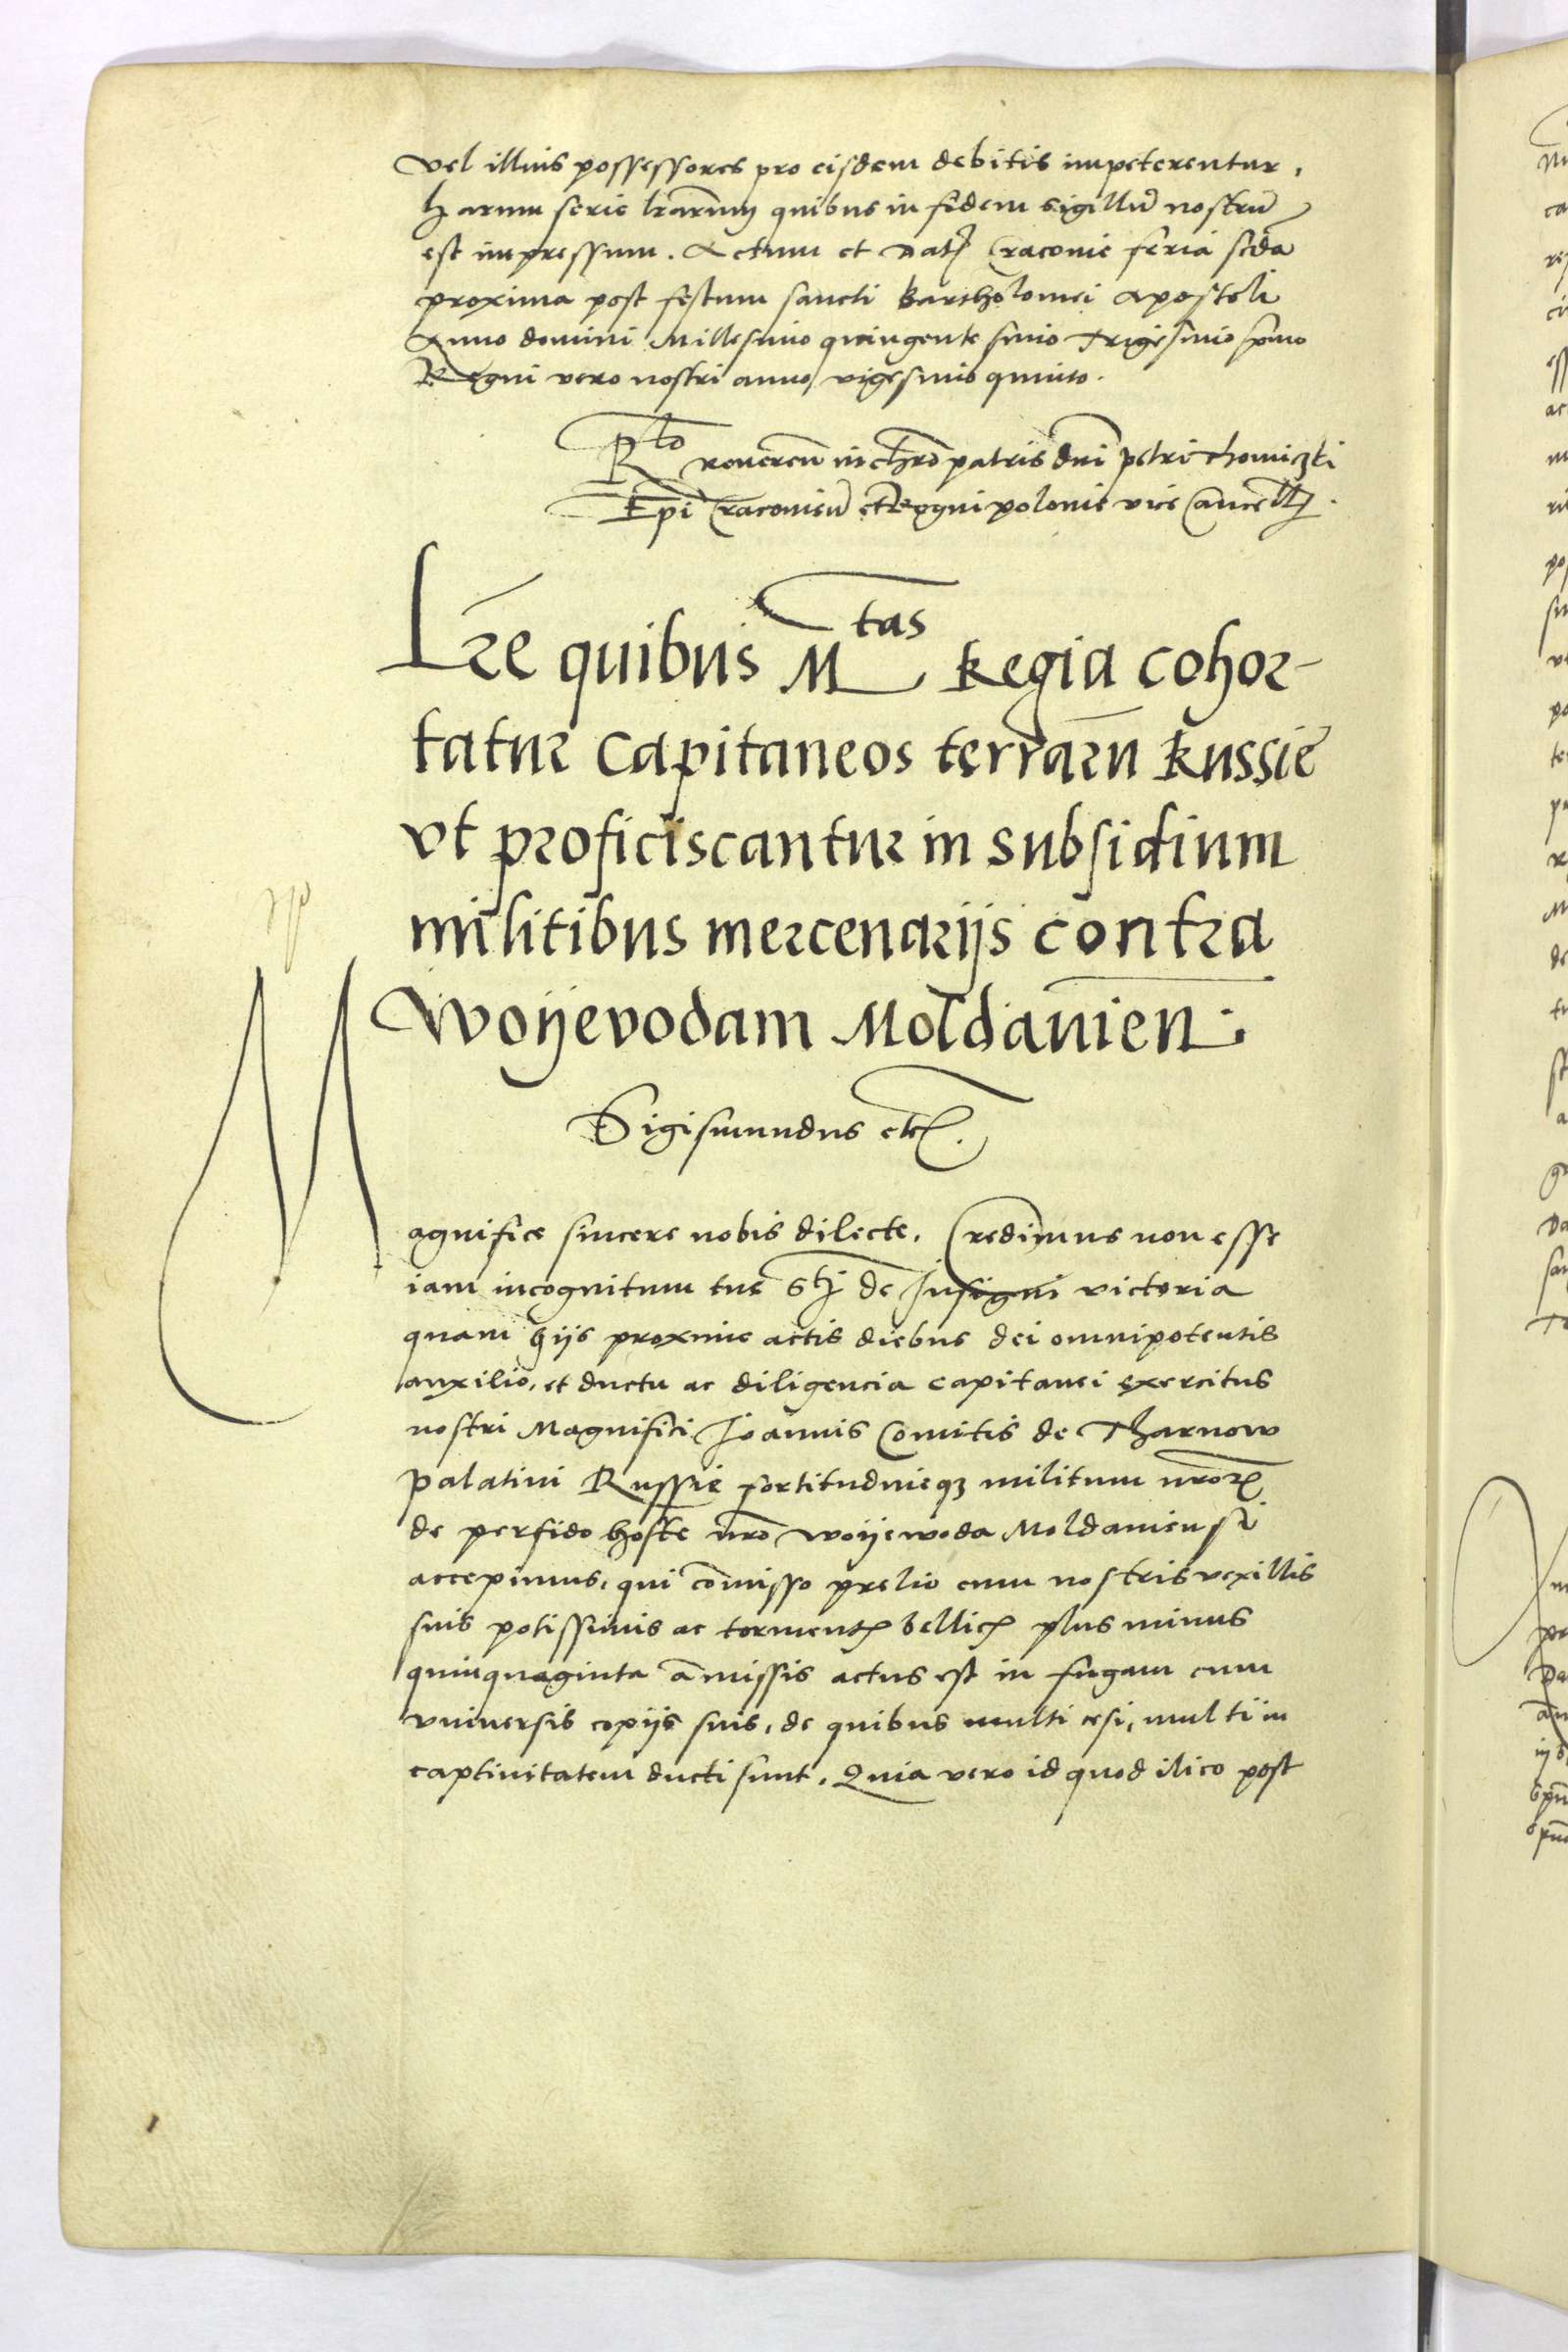 Vel illius possessores pro eisdem debitis impeterentur.
harum serie lrarum quibus in fidem sigillũ nostrũ
est impressum. Actum et Dat Cracovie feria scda
proxima post festum sancti Bartholomei Apostoli
Anno domini Millesimo quingentesimo Trigesimo pmo
Regni vero nostri anno vigesimo quinto.
Rlo reverenñ in chrõ patris dni Petri Thomiczki
Epi Cracovieñ et Regni polonie vice Cancell.
Lre quibus Mtas Regia cohor-
tatur Capitaneos terrarũ Russie
vt proficiscantur in subsidium
militibus mercenarijs contra
Woijevodam Moldavien.
Sigismundus etc.
Magnifice sincere nobis dilecte. Credimus non esse
iam incognitum tue Stj de Insigni victoria
quam hijs proxime actis diebus dei omnipotentis
auxilio, et ductu ac diligencia capitanei exercitus
nostri Magnifici Ioannis Comitis de Tharnow
Palatini Russie fortitudineqz militum nrorz
de perfido hoste nrõ woijewoda Moldaviensi
accepimus, qui cõmisso prelio cum nostris vexillis
suis potissimis ac tormentz bellicz plus minus
quinquaginta amissis actus est in fugam cum
vniversis copijs suis, de quibus multi cesi, multi in
captivitatem ducti sunt. Quia vero id quod ilico post